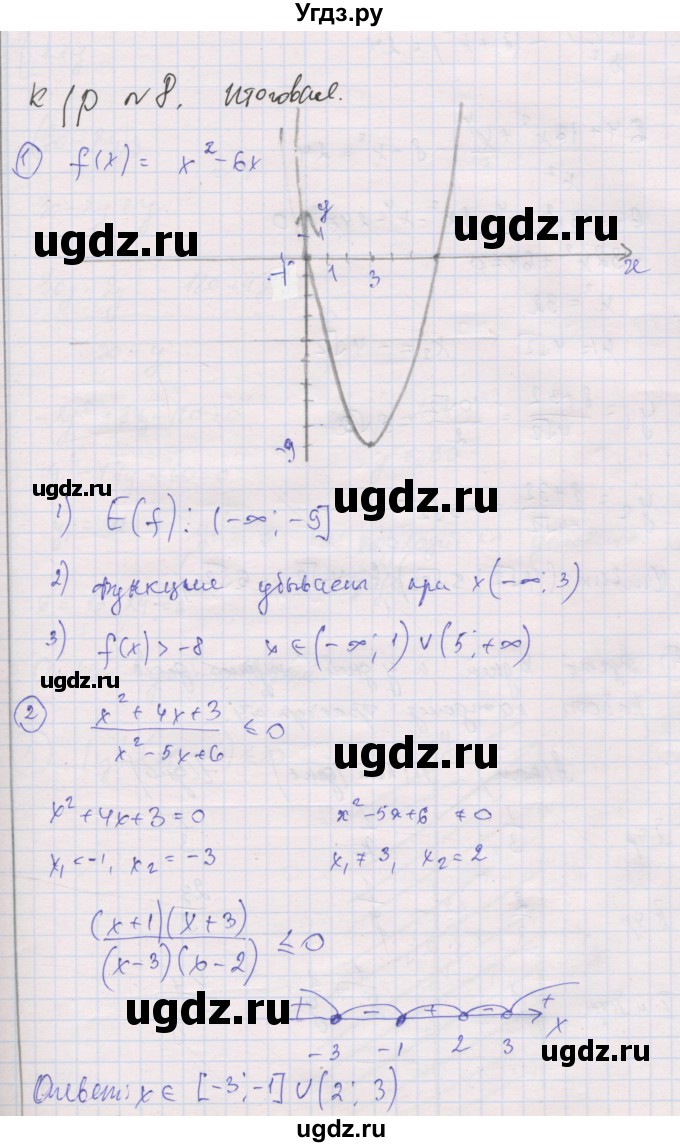 Угдз.ру
к/р №8. Итоговая.
① f(x) = x² - 6x
y
1
ugdz.ru
ugdz.ru
-1 1 3 x
-9
ugdz.ru
ugdz.ru
1) E(f): (-∞; -9]
2) функция убывает при x(-∞; 3)
3) f(x) > -8 x ∈ (-∞; 1) ∪ (5; +∞)
ugdz.ru
② (x² + 4x + 3)/(x² - 5x + 6) ≤ 0
ugdz.ru
x² + 4x + 3 = 0 x² - 5x + 6 ≠ 0
x₁ = -1, x₂ = -3 x₁ ≠ 3, x₂ = 2
((x+1)(x+3))/((x-3)(x-2)) ≤ 0
ugdz.ru
+ - + - +
-3 -1 2 3 x
ugdz.ru
Ответ: x ∈ [-3; -1] ∪ (2; 3)
ugdz.ru